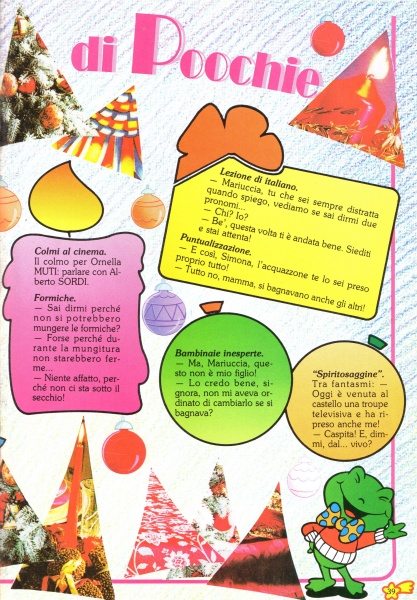 di Poochie
Lezione di italiano.
— Mariuccia, tu che sei sempre distratta
quando spiego, vediamo se sai dirmi due
pronomi...
— Chi? Io?
— Be', questa volta ti è andata bene. Siediti
e stai attenta!
Puntualizzazione.
— E così, Simona, l'acquazzone te lo sei preso
proprio tutto!
— Tutto no, mamma, si bagnavano anche gli altri!
Colmi al cinema.
Il colmo per Ornella
MUTI: parlare con Al-
berto SORDI.
Formiche.
— Sai dirmi perché
non si potrebbero
mungere le formiche?
— Forse perché du-
rante la mungitura
non starebbero fer-
me...
— Niente affatto, per-
ché non ci sta sotto il
secchio!
Bambinaie inesperte.
— Ma, Mariuccia, que-
sto non è mio figlio!
— Lo credo bene, si-
gnora, non mi aveva or-
dinato di cambiarlo se si
bagnava?
“Spiritosaggine”.
Tra fantasmi: —
Oggi è venuta al
castello una troupe
televisiva e ha ri-
preso anche me!
— Caspita! E, dim-
mi, dal... vivo?
39